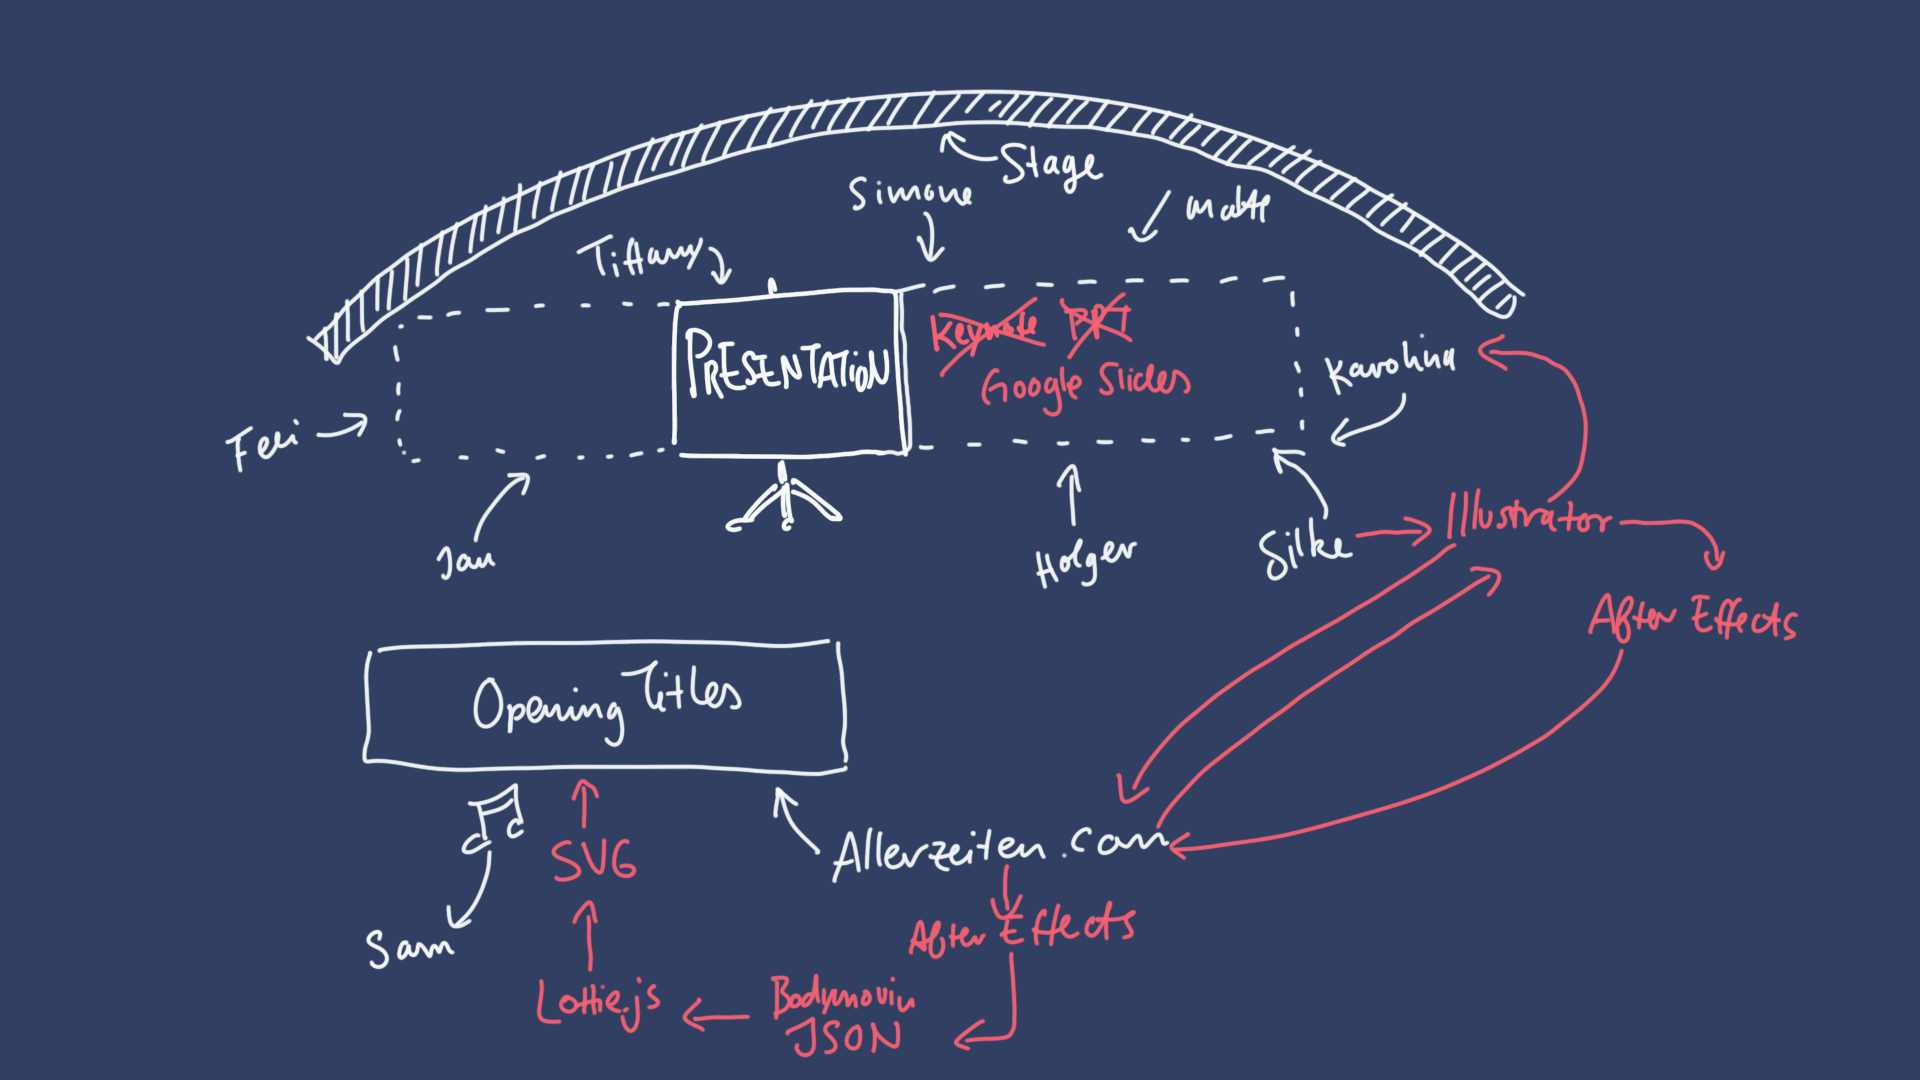 Stage
Simone
Matt
Tiffany
PRESENTATiON
Keynote PPT
Google Slides
Karolina
Feli
Jan
Holger
Silke
Illustrator
After Effects
Opening Titles
SVG
Allerzeiten.com
Sam
After Effects
Lottie.js
Bodymovin
JSON